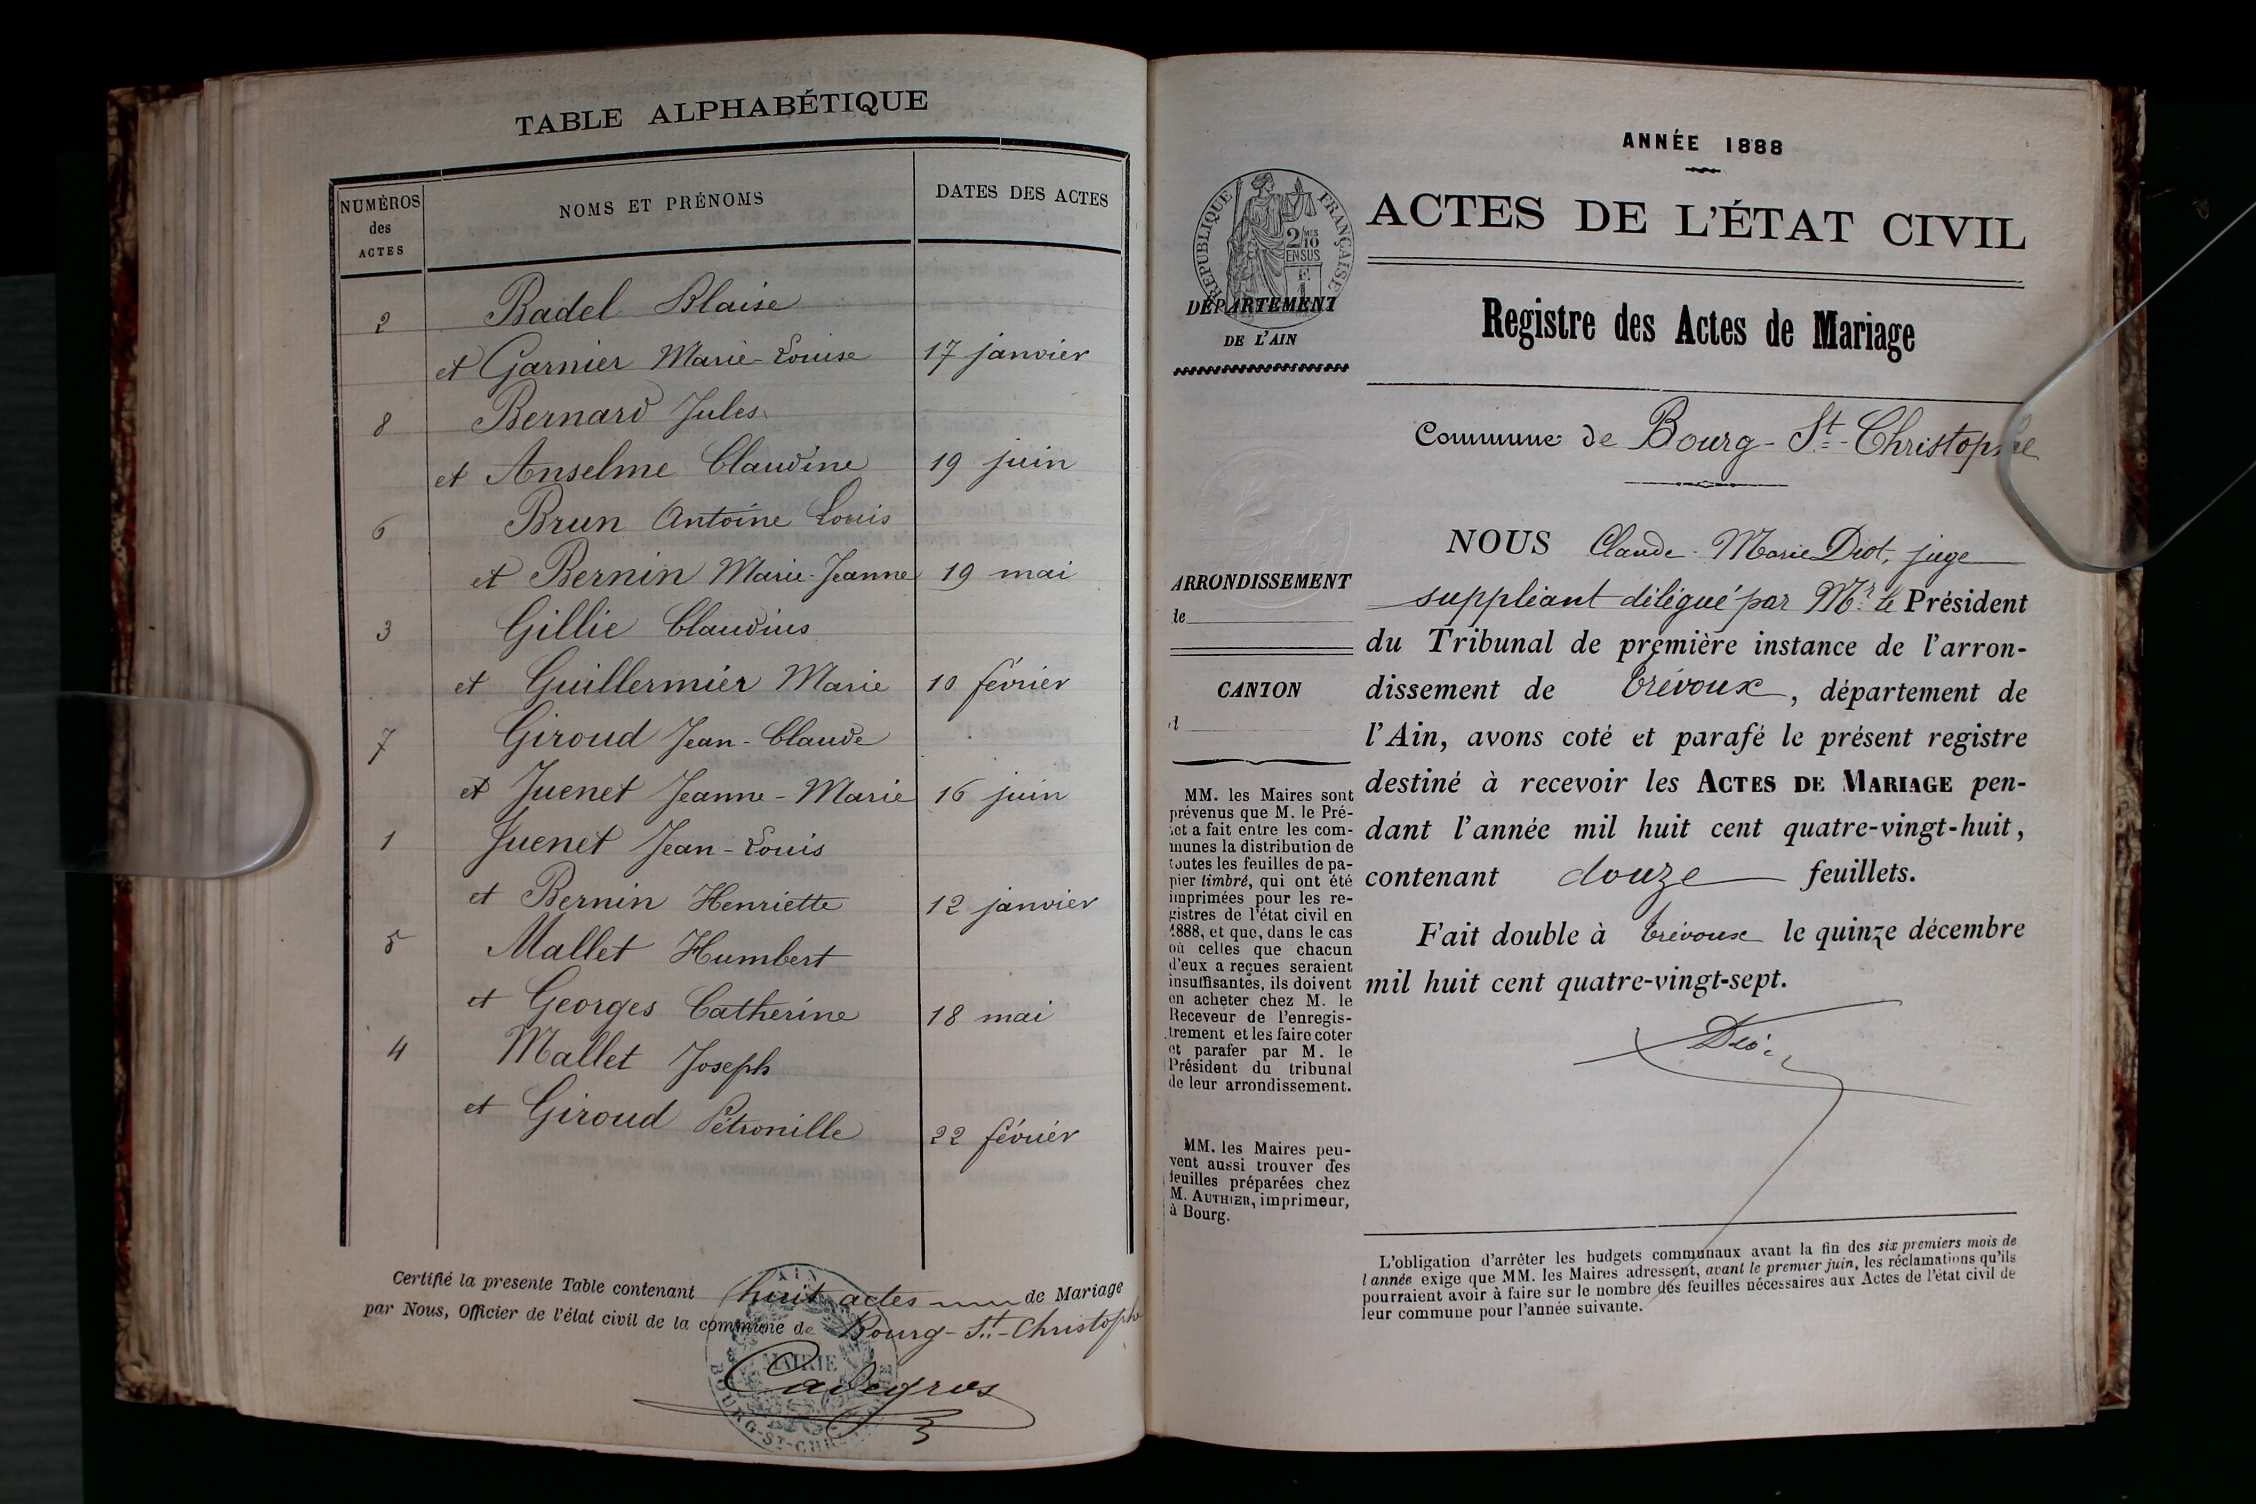 TABLE ALPHABÉTIQUE
NUMÉROS
des
ACTES
NOMS ET PRÉNOMS
DATES DES ACTES
2 Badel Blaise
et Garnier Marie-Louise 17 janvier
8 Bernard Jules
et Anselme Claudine 19 juin
6 Brun Antoine Louis
et Bernin Marie-Jeanne 19 mai
3 Gillie Claudius
et Guillermier Marie 10 février
7 Giroud Jean-Claude
et Juenet Jeanne-Marie 16 juin
1 Juenet Jean-Louis
et Bernin Henriette 12 janvier
5 Mallet Humbert
et Georges Catherine 18 mai
4 Mallet Joseph
et Giroud Pétronille 22 février
Certifié la presente Table contenant huit actes de Mariage
par Nous, Officier de l'état civil de la commune de Bourg-St-Christophe
AIN
MAIRIE
BOURG-ST-CHR
ANNÉE 1888
RÉPUBLIQUE FRANÇAISE
2/10
EN SUS
ACTES DE L'ÉTAT CIVIL
DÉPARTEMENT
DE L'AIN
Registre des Actes de Mariage
Commune de Bourg-St-Christophe
NOUS Claude-Marie Diot, juge
suppléant délégué par Mr le Président
du Tribunal de première instance de l'arron-
dissement de Trévoux, département de
l'Ain, avons coté et parafé le présent registre
destiné à recevoir les ACTES DE MARIAGE pen-
dant l'année mil huit cent quatre-vingt-huit,
contenant douze feuillets.
Fait double à Trévoux le quinze décembre
mil huit cent quatre-vingt-sept.
Diot
ARRONDISSEMENT
de
CANTON
d
MM. les Maires sont
prévenus que M. le Pré-
fet a fait entre les com-
munes la distribution de
toutes les feuilles de pa-
pier timbré, qui ont été
imprimées pour les re-
gistres de l'état civil en
1888, et que, dans le cas
où celles que chacun
d'eux a reçues seraient
insuffisantes, ils doivent
en acheter chez M. le
Receveur de l'enregis-
trement et les faire coter
et parafer par M. le
Président du tribunal
de leur arrondissement.
MM. les Maires peu-
vent aussi trouver des
feuilles préparées chez
M. AUTHIER, imprimeur,
à Bourg.
L'obligation d'arrêter les budgets communaux avant la fin des six premiers mois de
l'année exige que MM. les Maires adressent, avant le premier juin, les réclamations qu'ils
pourraient avoir à faire sur le nombre des feuilles nécessaires aux Actes de l'état civil de
leur commune pour l'année suivante.